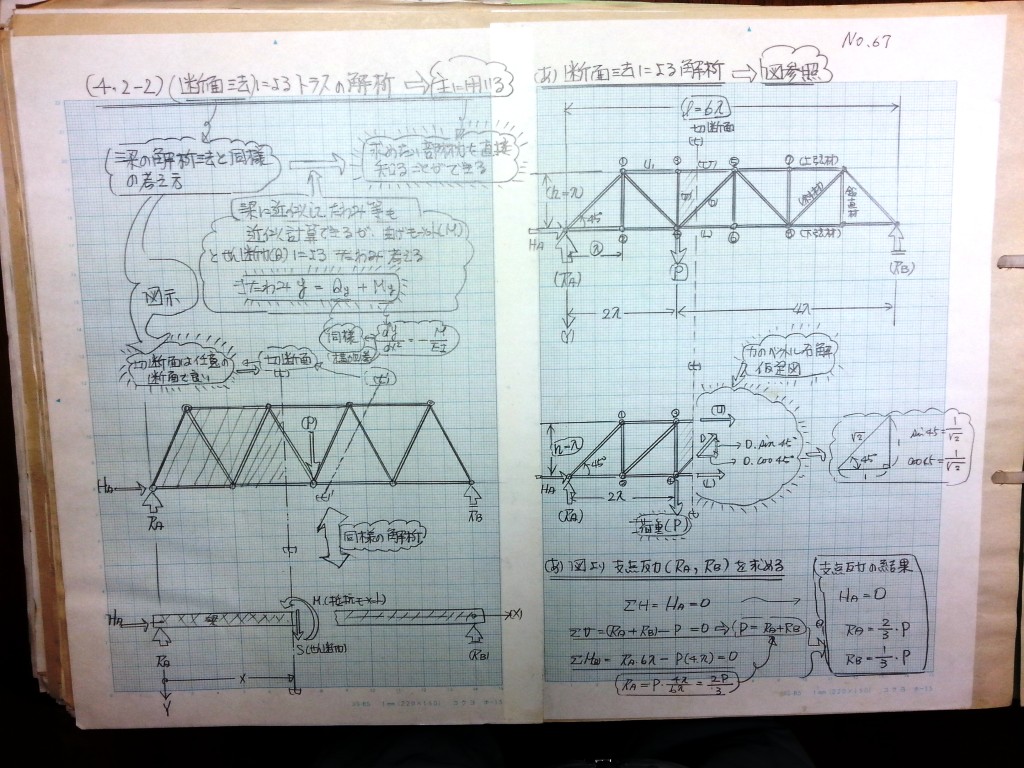 No.67
(4.2-2)(断面法)によるトラスの解析 ⇒ 主に用いる
梁の解析法と同様
の考え方
求めたい部材力を直接
知ることができる
梁に近似してたわみ等も
近似計算できるが、曲げモーメント(M)
とせん断力(Q)によるたわみ考える
たわみ y = Qy + My
図示
同様
dy/dx² = - M/EI
切断面は任意の
断面で良い
切断面
(P)
HA
RA
RB
同様の解析
HA
M(抵抗モーメント)
S(せん断力)
(X)
RA
(RB)
x
Y
(あ) 断面法による解析 ⇒ 図参照
(l=6λ)
切断面
(t)
U₁
(U)
(上弦材)
(h=λ)
45°
D
(斜材)
鉛直材
HA
(λ)
(L)
(下弦材)
(RA)
(P)
(RB)
2λ
4λ
(Y)
力のベクトル分解
仮定図
(t)
(U)
h=λ
45°
D
D.sin45°
D.cos45°
(L)
HA
(RA)
2λ
荷重(P)
√2
1
45°
1
sin45=1/√2
cos45=1/√2
(あ) 図より支点反力(RA, RB)を求める
ΣH = HA = 0
ΣV = (RA + RB) - P = 0 ⇒ (P = RA + RB)
ΣMB = RA.6λ - P(4.λ) = 0
(RA = P・4λ/6λ = 2P/3)
支点反力の結果
HA = 0
RA = 2/3・P
RB = 1/3・P